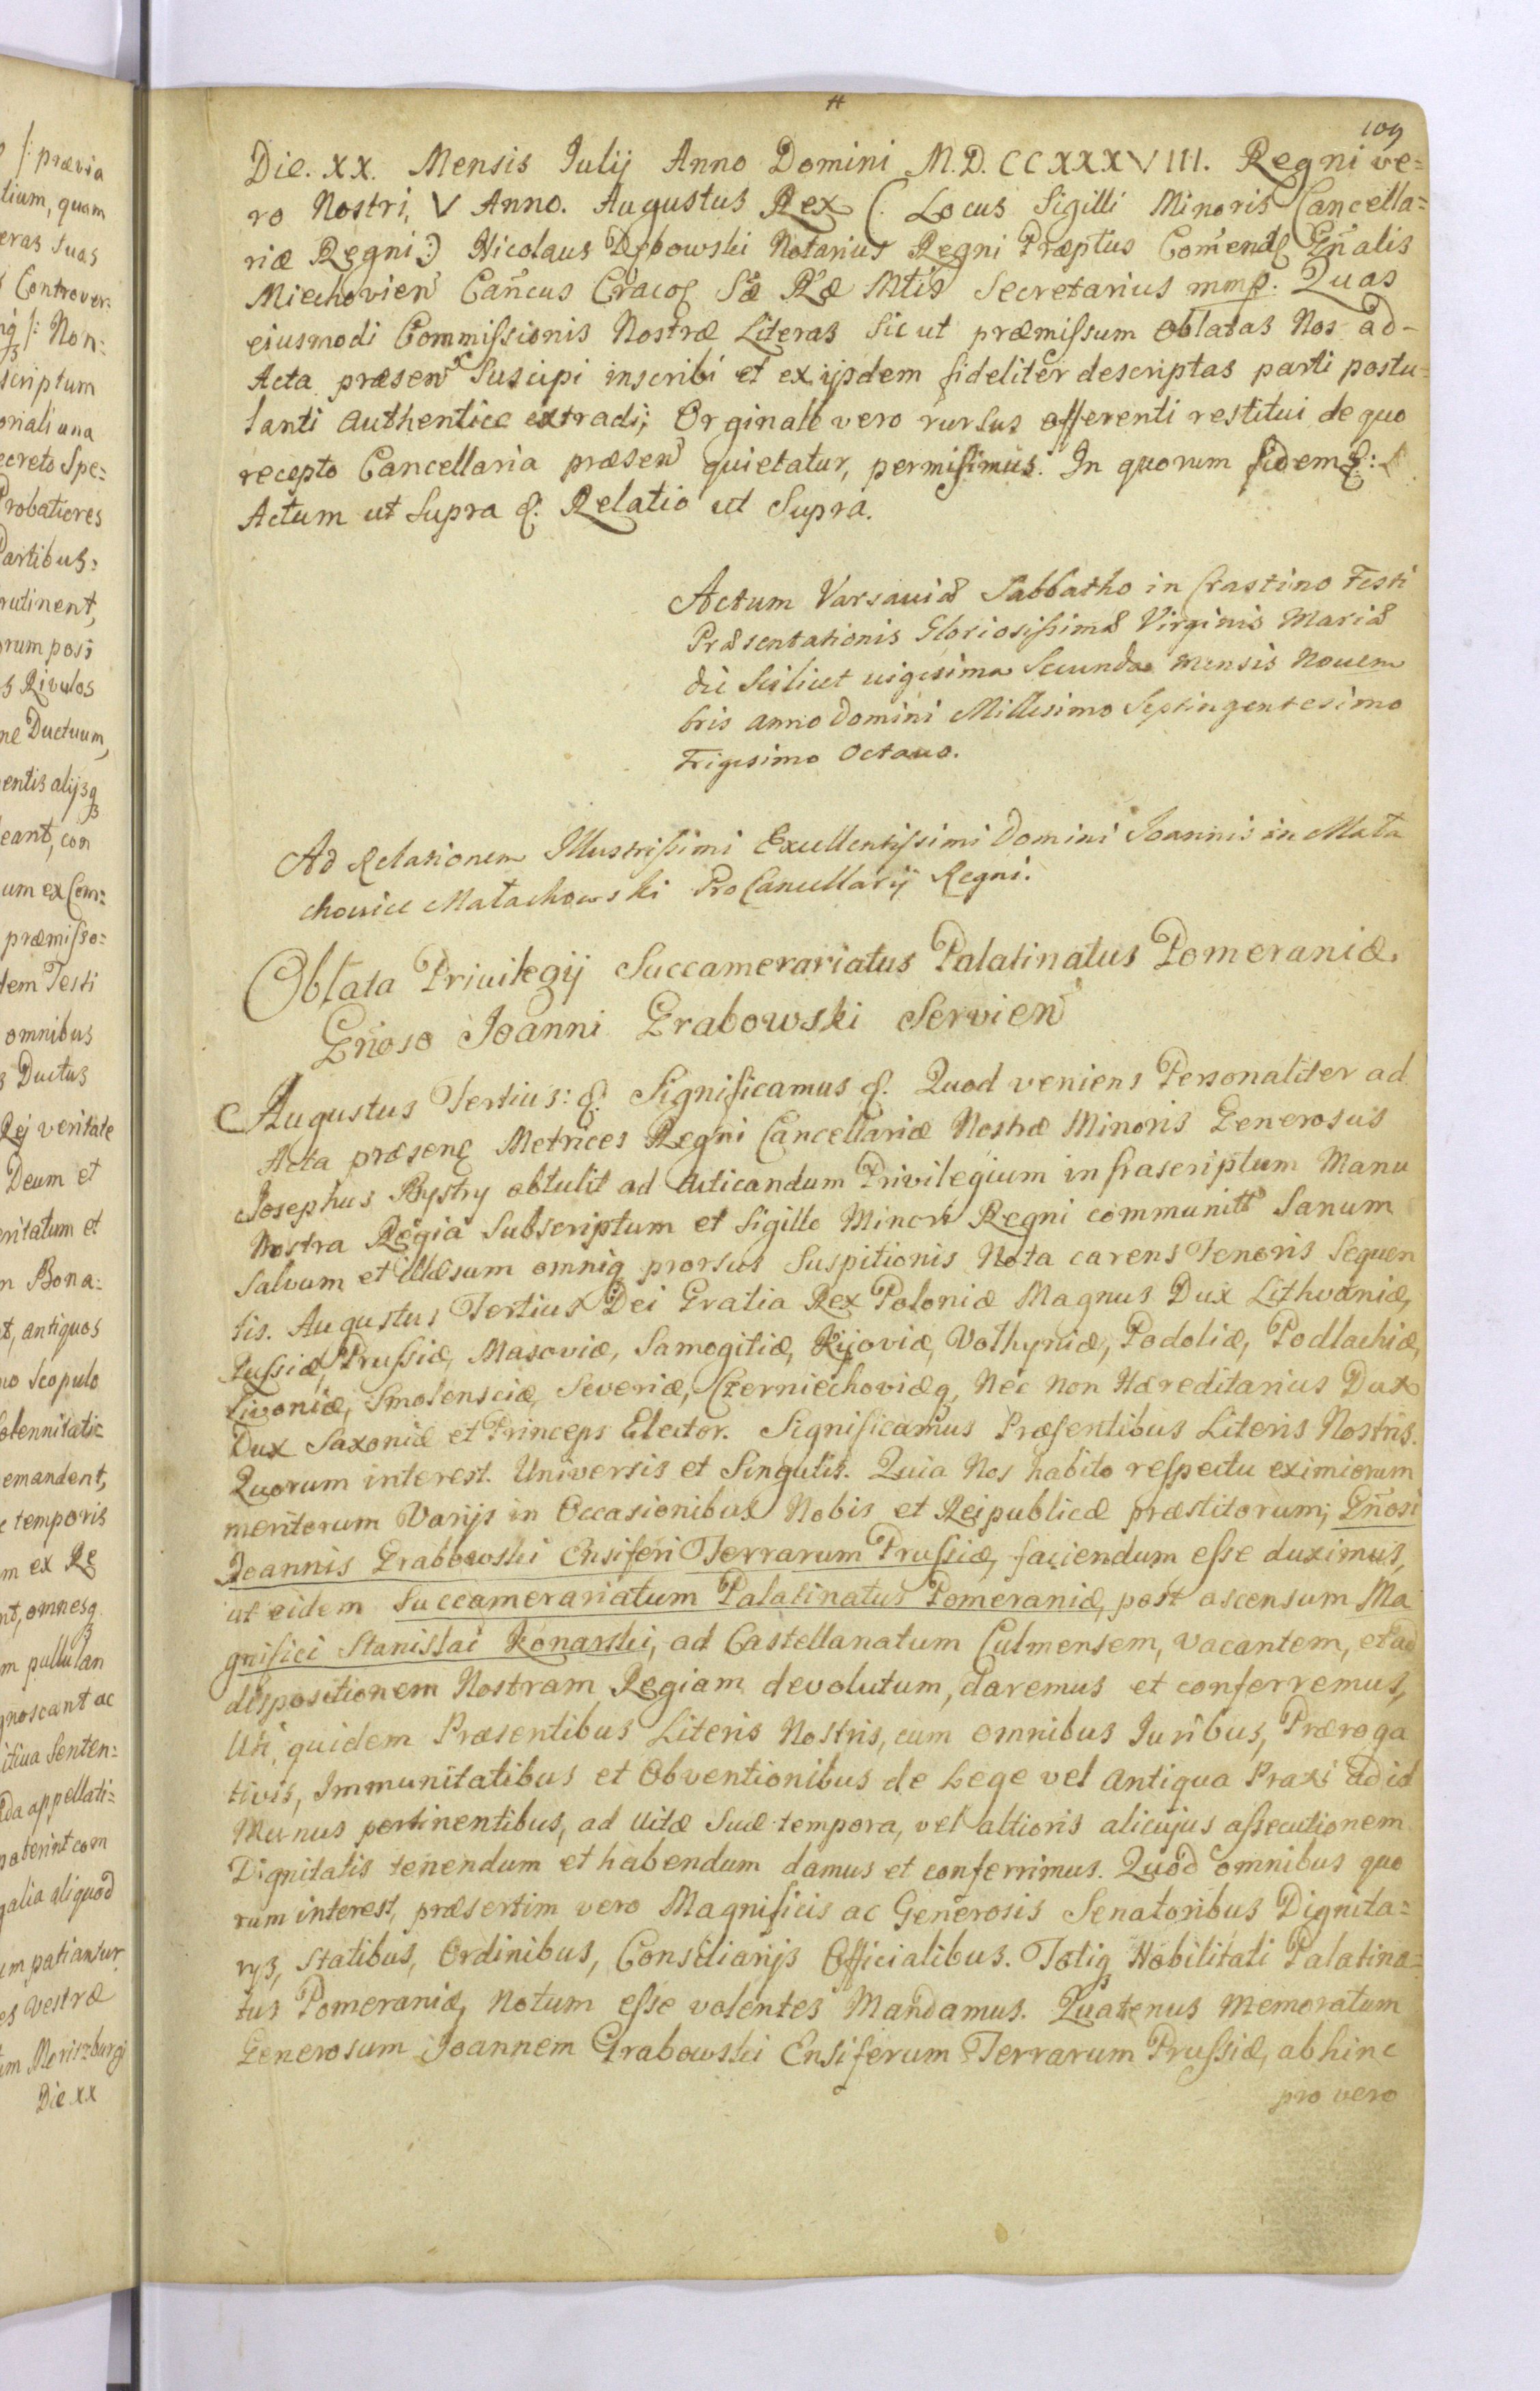 109
Die. XX. Mensis Julij Anno Domini M.D.CCXXXVIII. Regni ve=
ro Nostri, V Anno. Augustus Rex (: Locus Sigilli Minoris Cancella=
riæ Regni:) Nicolaus Dębowski Notarius Regni Præptus Com̃end Gñalis
Miechovien Cañcus Craco Sæ Ræ Mtis Secretarius mmp. Quas
eiusmodi Commissionis Nostræ Literas sic ut præmissum oblatas Nos ad-
Acta præsen Suscipi inscribi et ex ijsdem fideliter descriptas parti postu=
lanti authentice extradi; Orginale vero rursus offerenti restitui de quo
recepto Cancellaria præsen quietatur, permisimus. In quorum fidem &:
Actum ut Supra &. Relatio ut Supra.
Actum Varsauiæ Sabbatho in Crastino Festi
Præsentationis Gloriosissimæ Virginis Mariæ
die Scilicet uigesima Secunda mensis Nouem
bris anno Domini Millesimo Septingentesimo
Trigesimo Octauo.
Ad Relationem Illustrissimi Excellentissimi Domini Joannis in Mała
chowice Małachowski ProCancellarij Regni.
Oblata Priuilegij Succamerariatus Palatinatus Pomeraniæ
Gñoso Joanni Grabowski Servien
Augustus Tertius: &. Significamus &. Quod veniens Personaliter ad
Acta præsen Metrices Regni Cancellariæ Nostræ Minoris Generosus
Josephus Bystry obtulit ad Acticandum Privilegium infrascriptum Manu
Nostra Regia Subscriptum et Sigillo Minori Regni communitū Sanum
Salvum et illæsum omniq prorsus Suspitionis Nota carens Tenoris Sequen
tis. Augustus Tertius Dei Gratia Rex Poloniæ Magnus Dux Lithvaniæ,
Russiæ, Prussiæ, Masoviæ, Samogitiæ, Kijoviæ, Volhyniæ, Podoliæ, Podlachiæ,
Livoniæ, Smolensciæ, Severiæ, Czerniechoviæq, Nec Non Hæreditarius Dux
Dux Saxoniæ et Princeps Elector. Significamus Præsentibus Literis Nostris.
Quorum interest. Universis et Singulis. Quia Nos habito respectu eximiorum
meritorum Varijs in Occasionibus Nobis et Reipublicæ præstitorum; Gñosi
Joannis Grabowski Ensiferi Terrarum Prussiæ, faciendum esse duximus,
ut eidem Succamerariatum Palatinatus Pomeraniæ, post ascensum Ma
gnifici Stanislai Konarski, ad Castellanatum Culmensem, vacantem, et ad
dispositionem Nostram Regiam devolutum, daremus et conferremus,
Uti quidem Præsentibus Literis Nostris, cum omnibus Juribus, Præroga
tivis, Immunitatibus et Obventionibus de Lege vel antiqua Praxi ad id
Munus pertinentibus, ad uitæ Suæ tempora, vel altioris alicujus assecutionem
Dignitatis tenendum et habendum damus et conferrimus. Quod omnibus quo
rum interest, præsertim vero Magnificis ac Generosis Senatoribus Dignita=
rijs, Statibus, Ordinibus, Consiliarijs Officialibus. Totiq Nobilitati Palatina=
tus Pomeraniæ, Notum esse volentes Mandamus. Quatenus Memoratum
Generosum Joannem Grabowski Ensiferum Terrarum Prussiæ, abhinc
pro vero